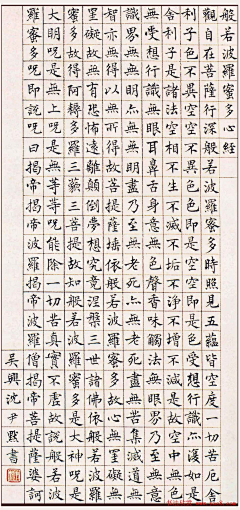 般若波羅蜜多心經
觀自在菩薩行深般若波羅蜜多時照見五蘊皆空度一切苦厄舍
利子色不異空空不異色色即是空空即是色受想行識亦復如是
舍利子是諸法空相不生不滅不垢不淨不增不減是故空中無色
無受想行識無眼耳鼻舌身意無色聲香味觸法無眼界乃至無意
識界無無明亦無無明盡乃至無老死亦無老死盡無苦集滅道無
智亦無得以無所得故菩提薩埵依般若波羅蜜多故心無罣礙無
罣礙故無有恐怖遠離顛倒夢想究竟涅槃三世諸佛依般若波羅
蜜多故得阿耨多羅三藐三菩提故知般若波羅蜜多是大神呪是
大明呪是無上呪是無等等呪能除一切苦真實不虛故說般若波
羅蜜多呪即說呪曰揭帝揭帝波羅揭帝波羅僧揭帝菩提薩婆訶
吳興沈尹默書